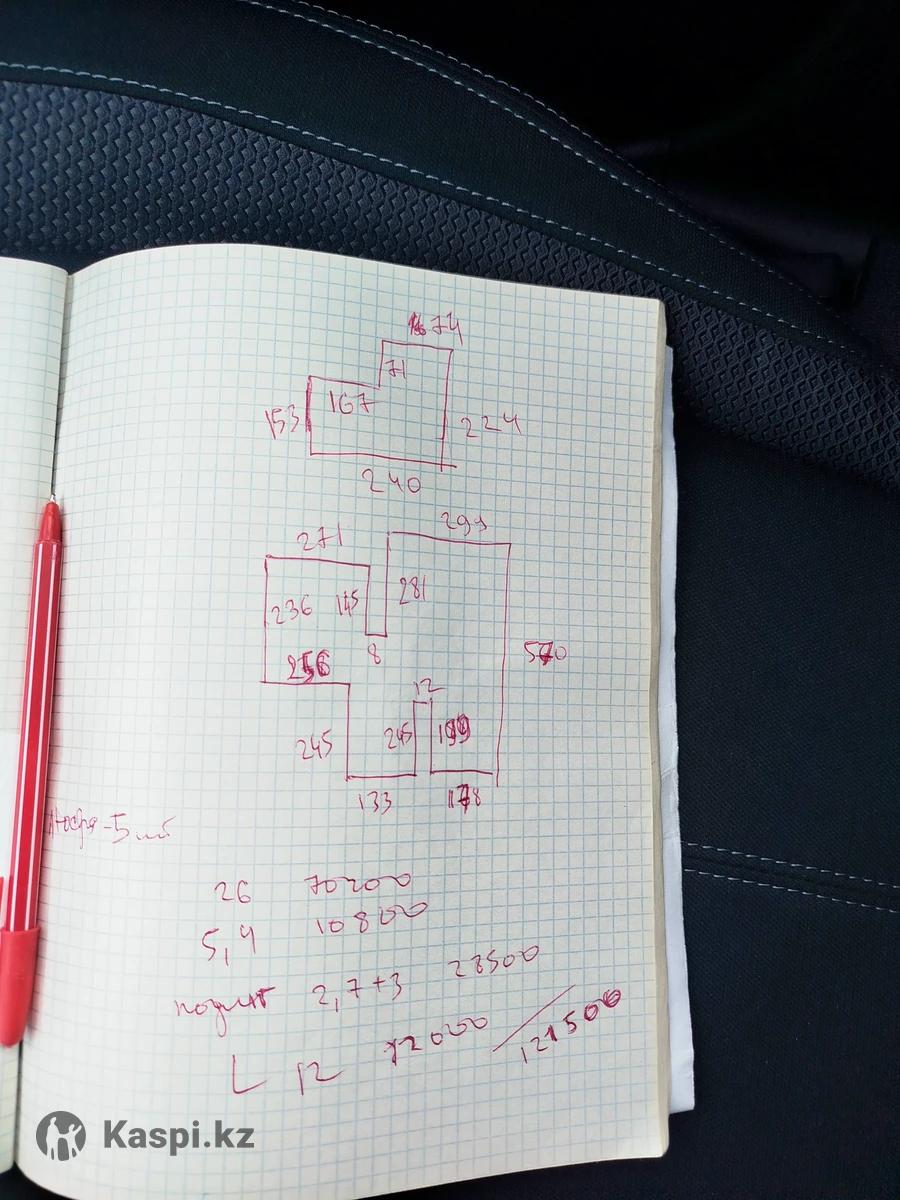 74
71
167
153
224
240
299
271
281
236
145
8
256
12
245
245
199
133
178
26 70200
5,4 10800
2,7+3 28500
L 12 12000
121500
Kaspi.kz